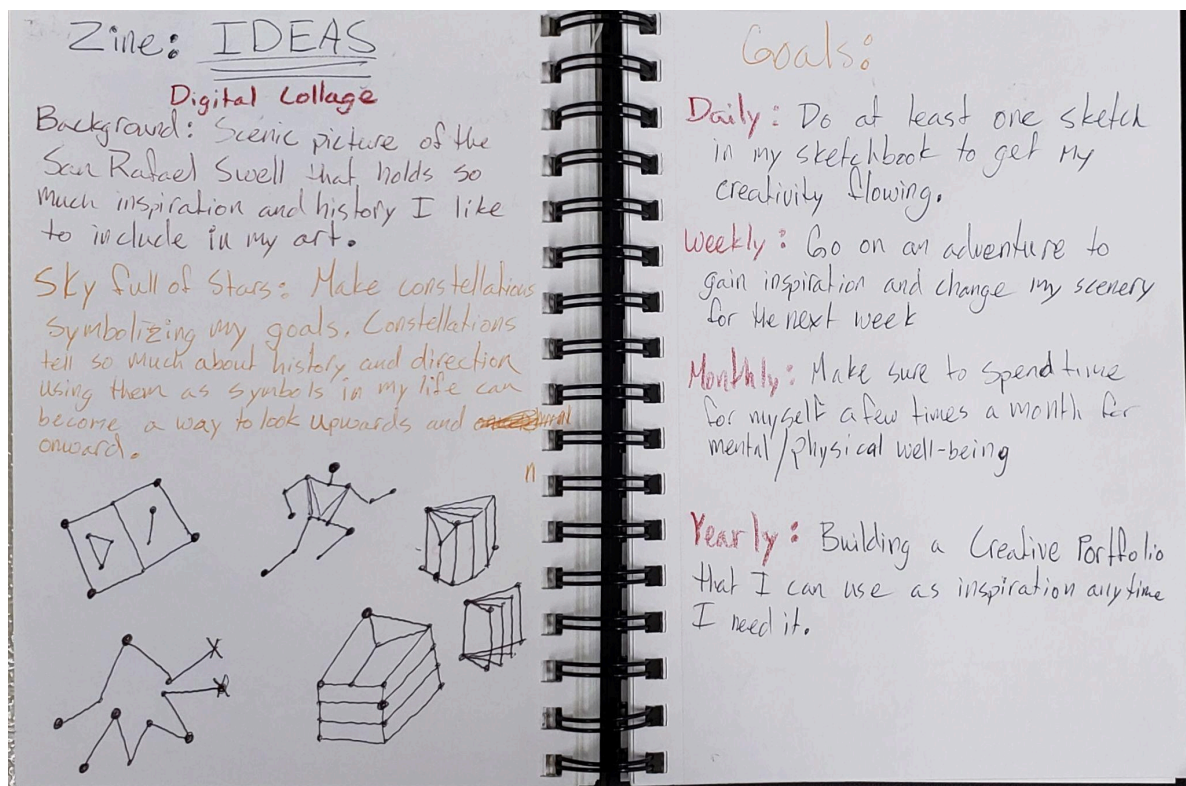 Zine: IDEAS
Digital Collage
Background: Scenic picture of the
San Rafael Swell that holds so
much inspiration and history I like
to include in my art.
Sky full of Stars: Make constellations
symbolizing my goals. Constellations
tell so much about history and direction
using them as symbols in my life can
become a way to look upwards and
onward.
n
Goals:
Daily: Do at least one sketch
in my sketchbook to get my
creativity flowing.
Weekly: Go on an adventure to
gain inspiration and change my scenery
for the next week
Monthly: Make sure to spend time
for myself a few times a month for
mental/physical well-being
Yearly: Building a Creative Portfolio
that I can use as inspiration anytime
I need it.